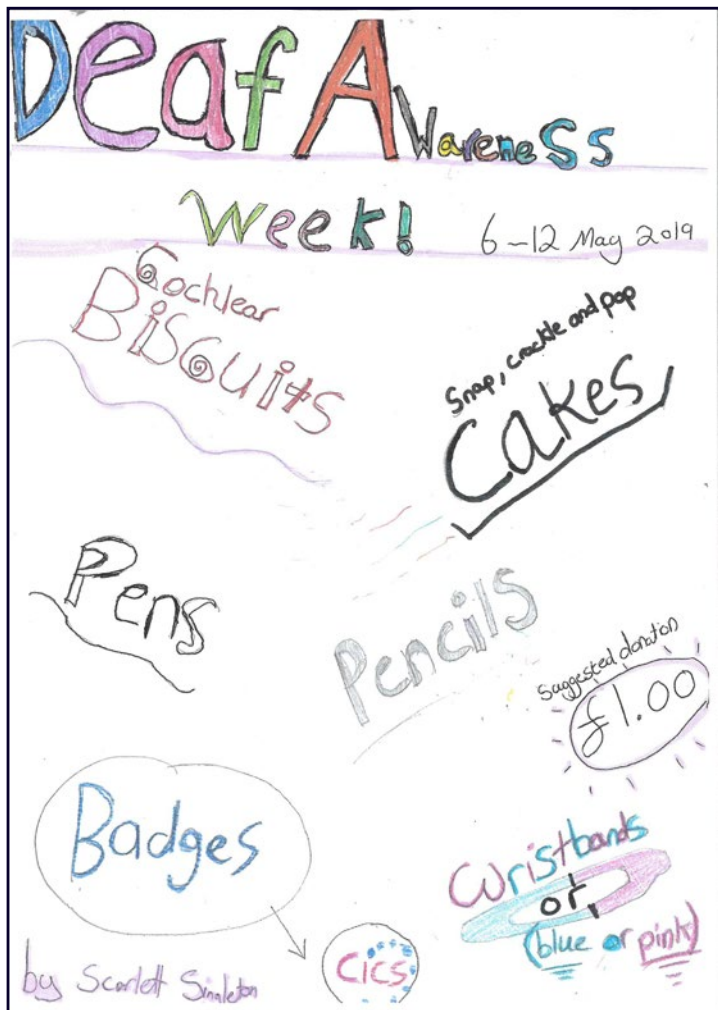 Deaf Awareness
Week!
6-12 May 2019
Cochlear
Biscuits
Snap, crackle and pop
Cakes
Pens
Pencils
Suggested donation
£1.00
Badges
Wristbands
or,
(blue or pink)
CICS
by Scarlett Singleton